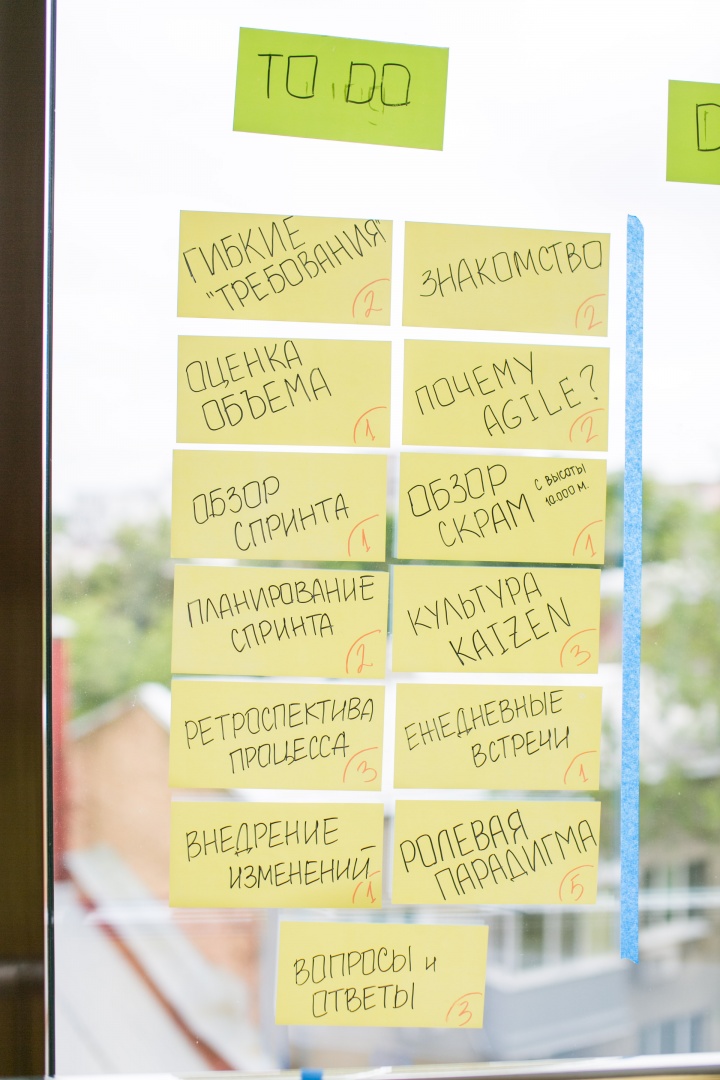 TO DO
D
ГИБКИЕ
"ТРЕБОВАНИЯ"
2
ЗНАКОМСТВО
2
ОЦЕНКА
ОБЪЕМА
1
ПОЧЕМУ
AGILE?
2
ОБЗОР
СПРИНТА
1
ОБЗОР
СКРАМ
С ВЫСОТЫ
10.000 М.
1
ПЛАНИРОВАНИЕ
СПРИНТА
2
КУЛЬТУРА
KAIZEN
3
РЕТРОСПЕКТИВА
ПРОЦЕССА
3
ЕЖЕДНЕВНЫЕ
ВСТРЕЧИ
1
ВНЕДРЕНИЕ
ИЗМЕНЕНИЙ
1
РОЛЕВАЯ
ПАРАДИГМА
5
ВОПРОСЫ и
ОТВЕТЫ
3